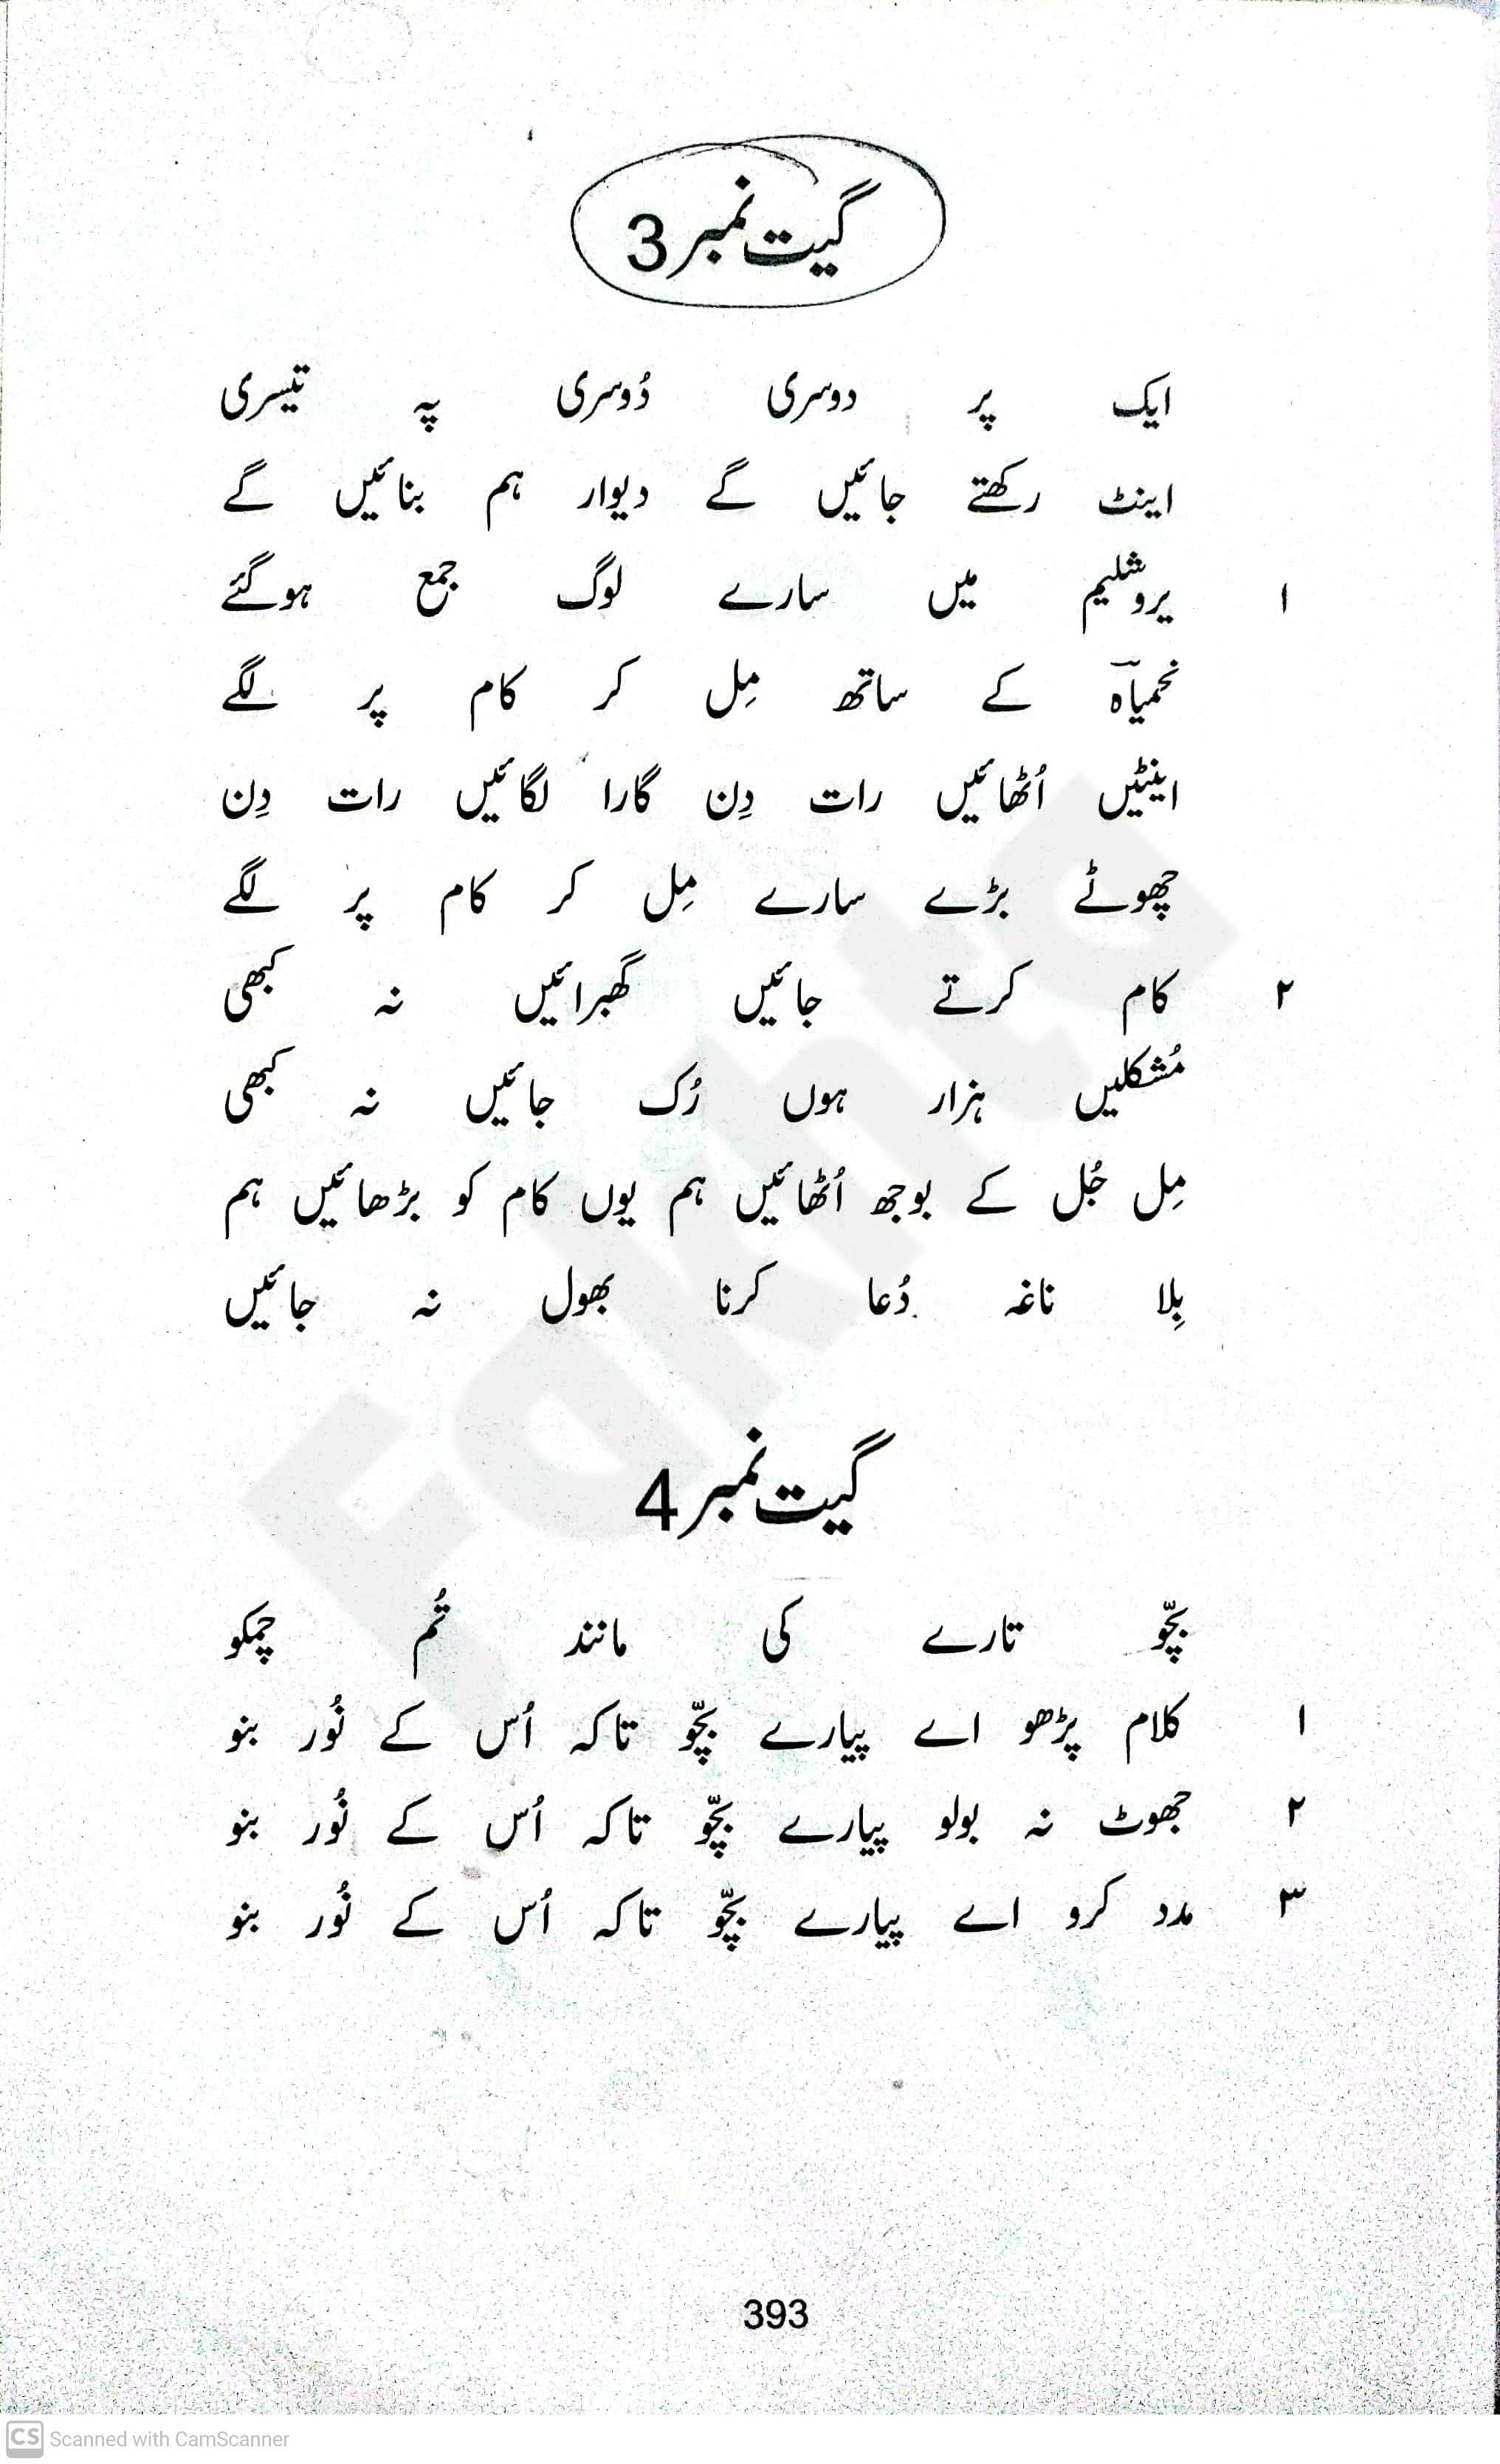 گیت نمبر 3
ایک پر دوسری دُوسری پہ تیسری
اینٹ رکھتے جائیں گے دیوار ہم بنائیں گے
۱ یروشلیم میں سارے لوگ جمع ہوگئے
نحمیاہؔ کے ساتھ مِل کر کام پر لگے
اینٹیں اُٹھائیں رات دِن گارا لگائیں رات دِن
چھوٹے بڑے سارے مِل کر کام پر لگے
۲ کام کرتے جائیں گھبرائیں نہ کبھی
مُشکلیں ہزار ہوں رُک جائیں نہ کبھی
مِل جُل کے بوجھ اُٹھائیں ہم یوں کام کو بڑھائیں ہم
بِلا ناغہ دُعا کرنا بھول نہ جائیں
گیت نمبر 4
بچّو تارے کی مانند تُم چمکو
۱ کلام پڑھو اے پیارے بچّو تاکہ اُس کے نُور بنو
۲ جھوٹ نہ بولو پیارے بچّو تاکہ اُس کے نُور بنو
۳ مدد کرو اے پیارے بچّو تاکہ اُس کے نُور بنو
393
Fakhta
CS Scanned with CamScanner